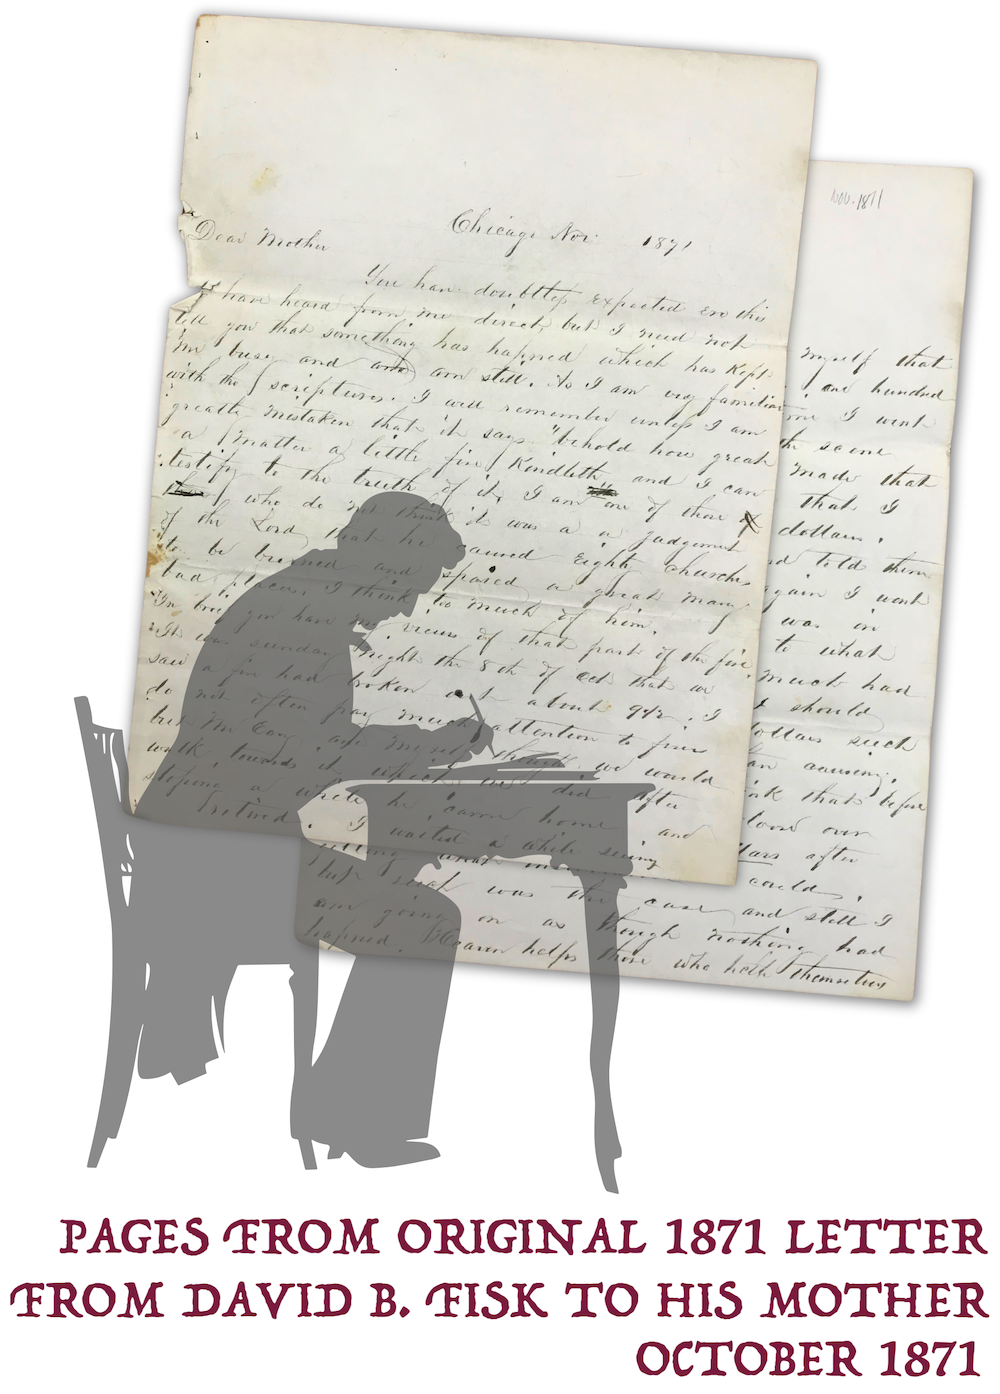 Nov. 1871
Chicago Nov. 1871
Dear Mother
You have doubtless expected ere this
to have heard from me direct, but I need not
tell you that something has hapned which has Kept
me busy and and am still. As I am very familiar
with the scriptures. I will remember unless I am
greatly mistaken that it says "behold how great
a matter a little fire Kindleth and I can
testify to the truth of it, I am one of those
who do not think it was a a judgement
of the Lord that he caused Eighty churches
to be burned and spared a great many
bad places, I think too much of him.
In brief you have my views of that part of the fire,
It was sunday night the 8th of Oct that we
saw a fire had broken out about 9½. I
do not often pay much attention to fires
but Mr and myself thought we would
walk towards it which we did after
stoping a while he came home and
retired. I waited a while seeing
myself that
one hundred
I went
the scene
made that
that I
dollars.
told them
again I went
was in
to what
much had
I should
dollars such
an causing.
that before
loose over
dollars after
could.
help such was the case and still I
am going on as though nothing had
hapned. Heaven helps those who help themselves
PAGES FROM ORIGINAL 1871 LETTER
FROM DAVID B. FISK TO HIS MOTHER
OCTOBER 1871